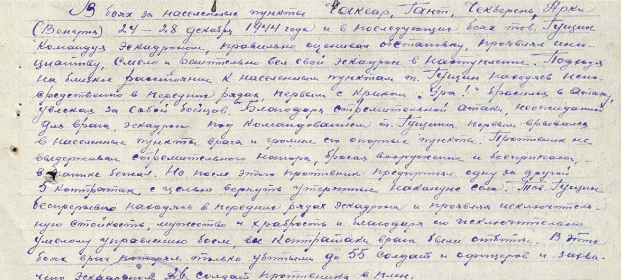 В боях за населенные пункты Чаквар, Гант, Чекберень, Арки
(Венгрия) 24-28 декабря 1944 года и в последующих боях тов. Гущин
командуя эскадроном, правильно оценивая обстановку, проявляя ини-
циативу, смело и решительно вел свой эскадрон в наступление. Подходя
на близкое расстояние к населенным пунктам т. Гущин находясь непо-
средственно в передних рядах первым с криком „Ура!" бросался в атаку,
увлекая за собой бойцов. Благодаря стремительной атаки неожиданной
для врага, эскадрон под командованием т. Гущина первым врывался
в населенные пункты врага и громил его опорные пункты. Противник не
выдерживая стремительного напора, бросая вооружение и боеприпасы,
в панике бежал. Но после этого противник предпринял одну за другой
5 контратак, с целью вернуть утерянные накануне села. Тов. Гущин
беспрерывно находясь в передних рядах эскадрона и проявляя исключитель-
ную стойкость, мужество и храбрость и благодаря его исключительно
умелому управлению боем, все контратаки врага были отбиты. В этих
боях враг потерял только убитыми до 55 солдат и офицеров и захва-
чено эскадроном 26 солдат противника в плен.